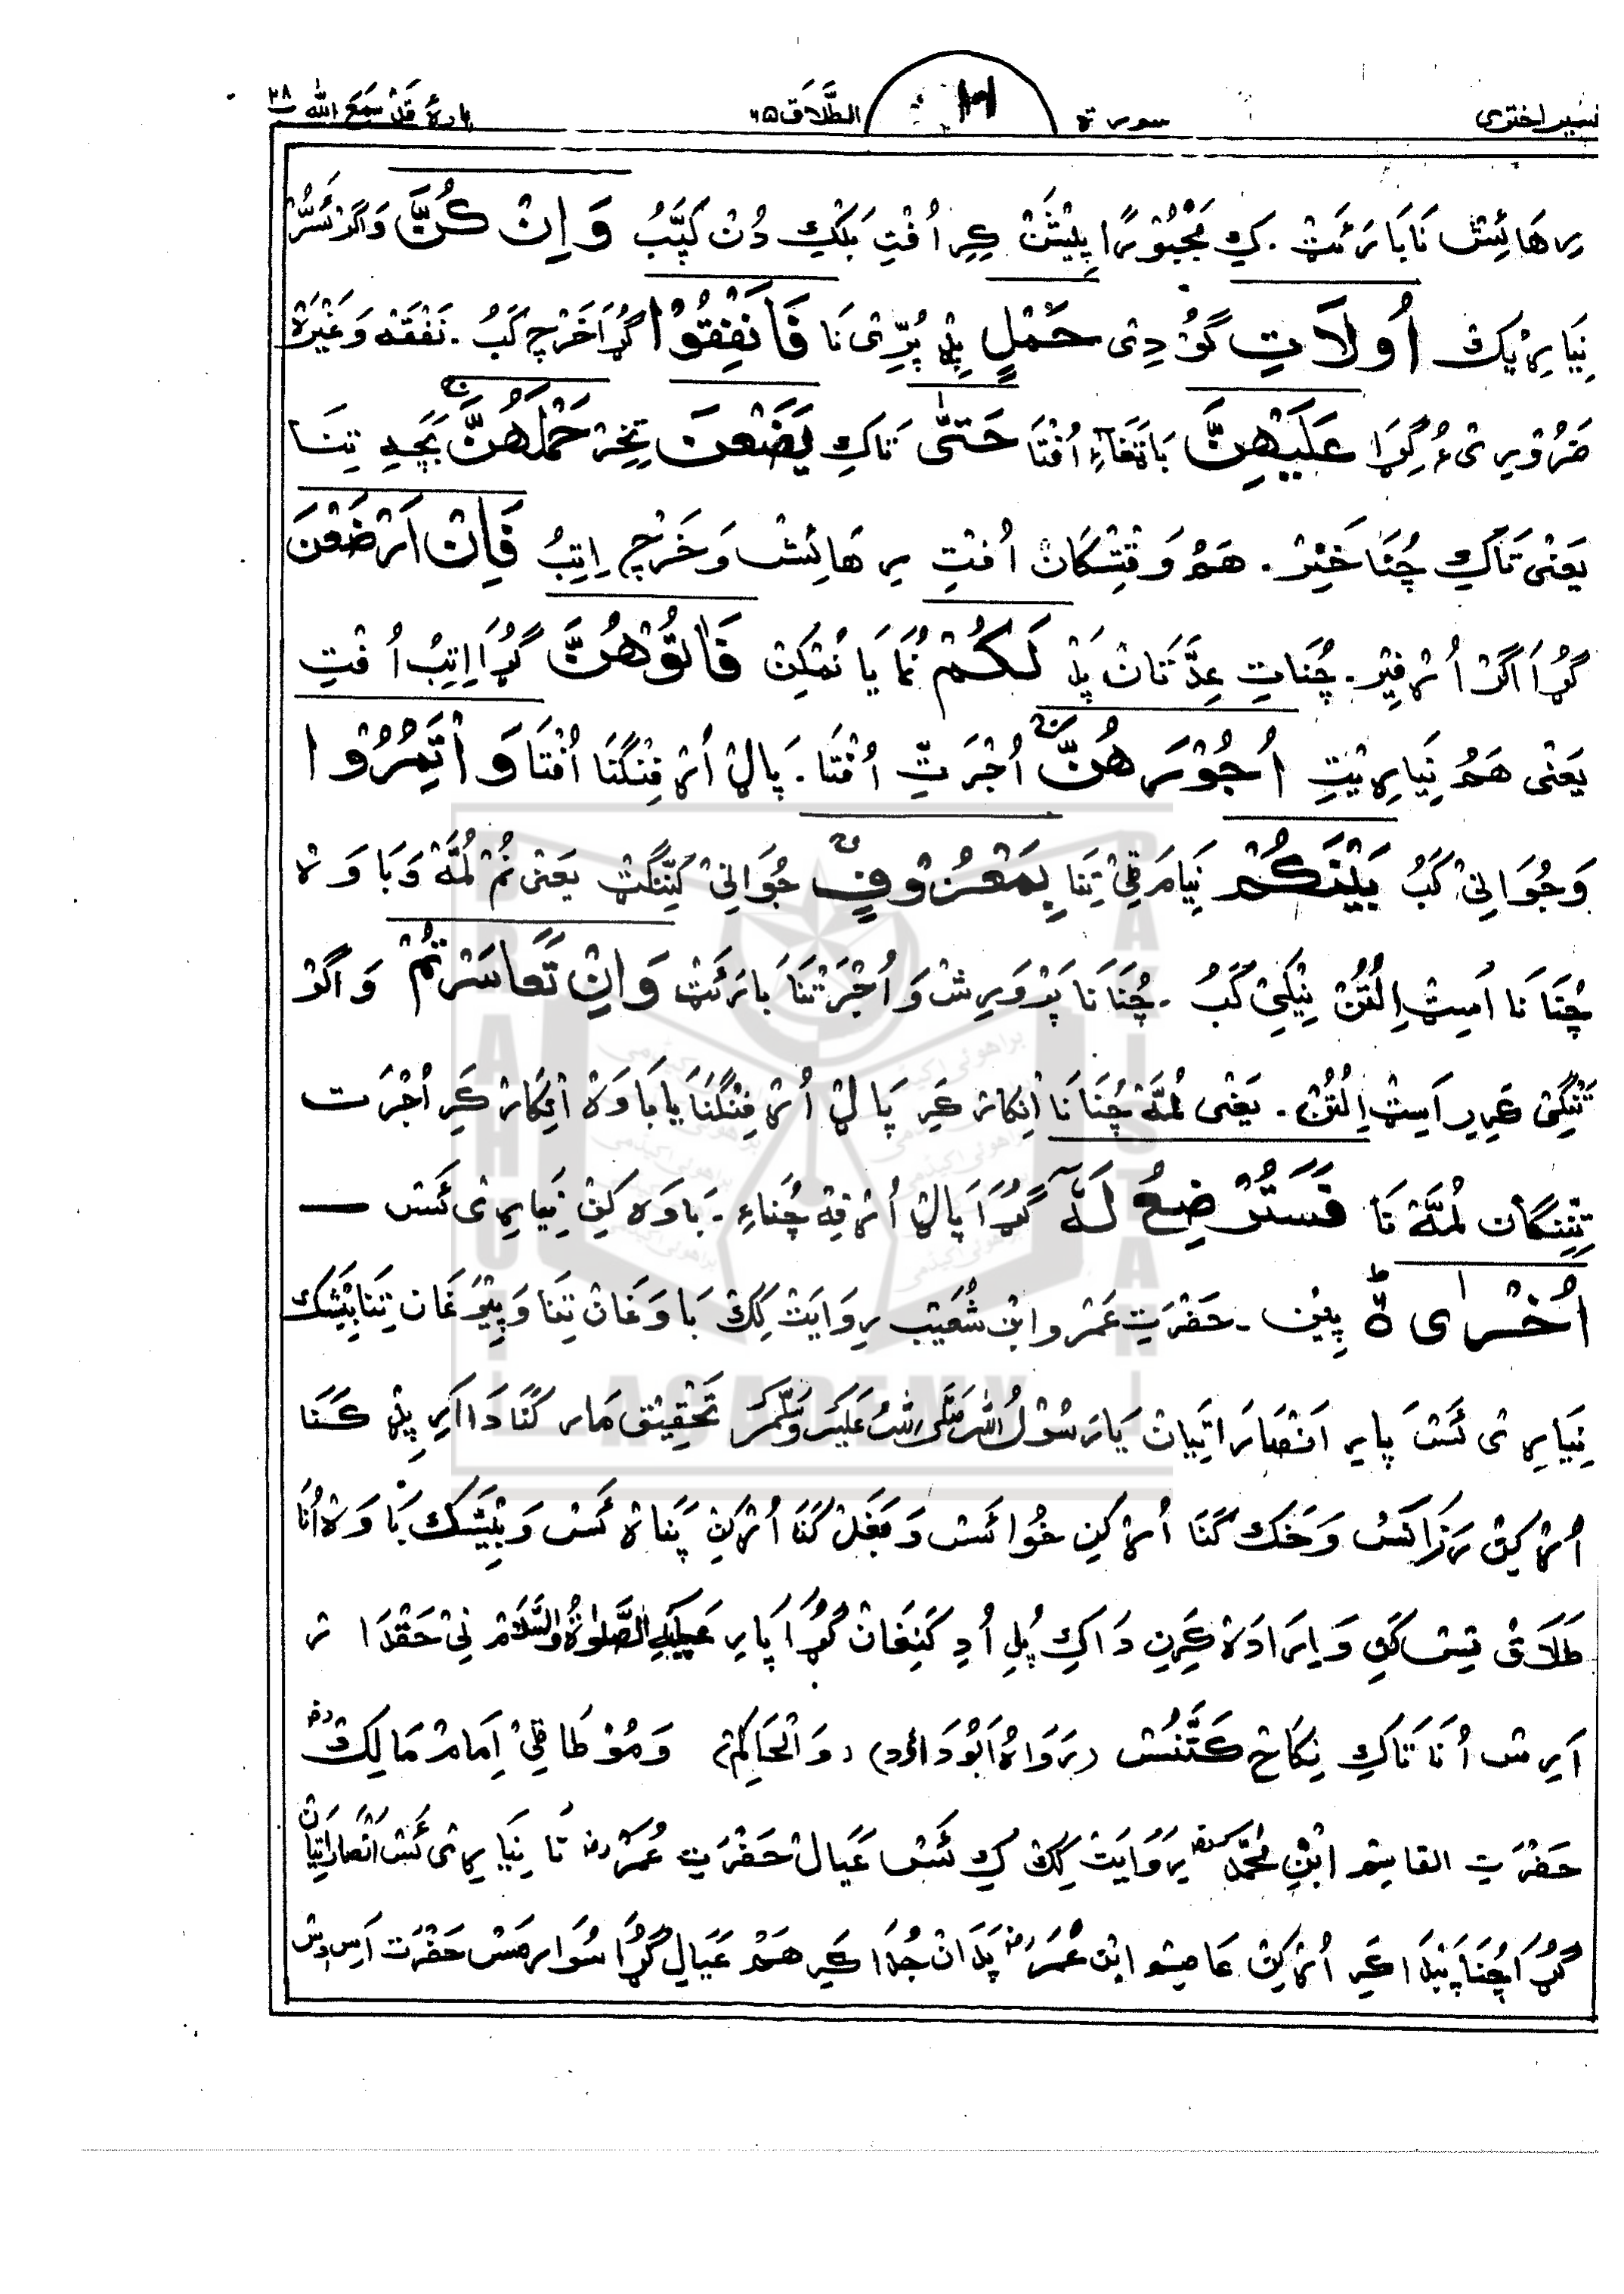 تفسیر اختری سورۃ الطَّلَاق ۶۵ پارۂ قَدْ سَمِعَ اللہ ۲۸
رِھَائِشْ نَا بَارَئَٹْ . کِ مَجْبُوْرًا پِیْشَنْ کِرِ اُفْتِ بَلْکِ دُنْ کَپَّبُ وَاِنْ كُنَّ وَاگَرْ مَسُّرْ
نِیَاڑِیْک اُولَاتِ گُوْدِیْ حَمْلٍ پِڈْ پُرِّیْ نَا فَاَنْفِقُوْا گُڑَا خَرْچ کَبُ . نَفْقَہ وَغَیْرَہْ
ضَرُوْرِیْ ءُ گِڑَا عَلَیْهِنَّ بَاتَغَاءِ اُفْتَا حَتّٰی تَاکِ یَضَعْنَ تِخِرْ حَمْلَهُنَّ بَچِّہِ تِنَا
یَعْنِیْ تَاکِ چُنَا خَنِرْ . ھَمُ وَقْتِسْکَانْ اُفْتِ رِھَائِشْ وَخَرْچ اِتِبُ فَاِنْ اَرْضَعْنَ
گُڑَا اَگَرْ اُڑْ فِیْر . چُنَاتِ عِدَّتَانْ پَدْ لَکُمْ نُمَا یَا نُمْکِنْ فَاٰتُوْهُنَّ گُڑَا اِتِبُ اُفْتِ
یَعْنِیْ ھَمُ نِیَاڑِیْتِ اُجُوْرَهُنَّ اُجْرَتِ اُفْتَا . پَالْ اُڑْ فِنْگَنَا اُفْتَا وَاْتَمِرُوْا
وَجُوَانِیْ کَبُ بَیْنَکُمْ نِیَامَ ٹِیْ تِنَا بِمَعْرُوْفٍ جُوَانِیْ کَنِّنْگَٹْ یَعْنِیْ نُمْ لُمَّہْ وَبَاوَہْ
چُنَا نَا اَسِٹْ اِلُتُنْ نِیْکِیْ کَبُ . چُنَا نَا پَرْوَرِشْ وَاُجْرَتْنَا بَارَئَٹْ وَاِنْ تَعَاسَرْتُمْ وَاگَرْ
تَنْگِیْ کَرِیرِ اَسِٹْ اِلُتُنْ . یَعْنِیْ لُمَّہْ چُنَا نَا اِنْکَارْ کَرِ پَالْ اُڑْ فِنْگَنَا یَا بَاوَہْ اِنْکَارْ کَرِ اُجْرَت
تِنِنْگَانْ لُمَّہْ نَا فَسَتُرْضِعُ لَہٗ گُڑَا پَالْ اُڑْ فِہْ چُنَاءِ . بَاوَہ کِنْ نِیَاڑِیْ ئَسْ
اُخْرٰی پِیْن . حَضْرَتِ عَمْرو ابْن شُعَیْب رِوَایَتْ کِکْ بَاوَغَانْ تِنَا وَپِیْرَغَانْ تِنَا بِیْشَک
نِیَاڑِیْ ئَسْ پَارِ اَنْصَارَاتِیَانْ یَا رَسُوْلُ اللّٰہ صَلَّی اللّٰہُ عَلَیْہِ وَسَلَّمَ تَحْقِیْق مَار کَنَا دَا اَرِ پِڈْ کَنَا
اُڑْکِنْ رَزَائَسْ وَخَک کَنَا اُڑْکِنْ خُوائَسْ وَبَغَلْ کَنَا اُڑْکِنْ پَنَاہْ ئَسْ وَبِیْشَک بَاوَہْ اُنَا
طَلَاقْ تِسْ کَنِ وَاِرَادَہْ کَرِنِ دَاکِ پُلِ اُدِ کَنِغَانْ گُڑَا پَارِ عَلَیْہِ الصَّلٰوۃُ وَالسَّلَامْ نِیْ حَقْدَارْ
اَرِسْ اُنَا تَاکِ نِکَاحْ کَتَّنُسْ (رَوَاہُ اَبُوْدَاؤد) (وَالْحَاکِمْ) وَمُؤطَا ٹِیْ اِمَامْ مَالِکْ رح
حَضْرَتِ القاسِم ابْنِ مُحَمَّد رِوَایَتْ کِکْ کِ ئَسْ عَیَالْ حَضْرَتِ عُمَرْ رض نَا نِیَاڑِیْ ئَسْ اَنْصَارَاتِیَانْ
گُڑَا چُنَا پَیْدَا کَرِ اُڑْکِنْ عَاصِم ابْنِ عُمَرَ رض پَدَانْ جُدَا کَرِ ھَمْ عَیَالِ گُڑَا سُوَار مَسْ حَضْرَت اَسِ دِسْ
BRAHUI ACADEMY PAKISTAN